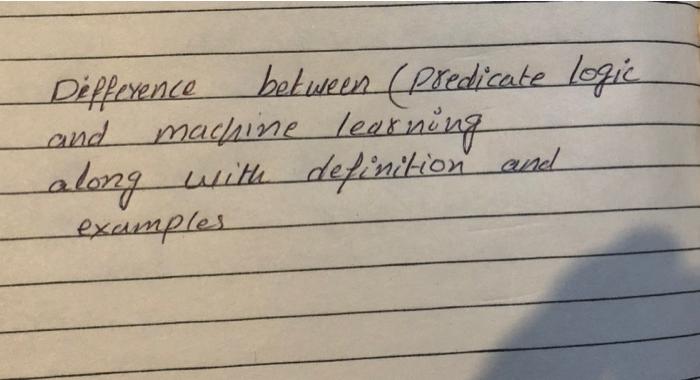 Difference between (predicate logic
and machine learning
along with definition and
examples